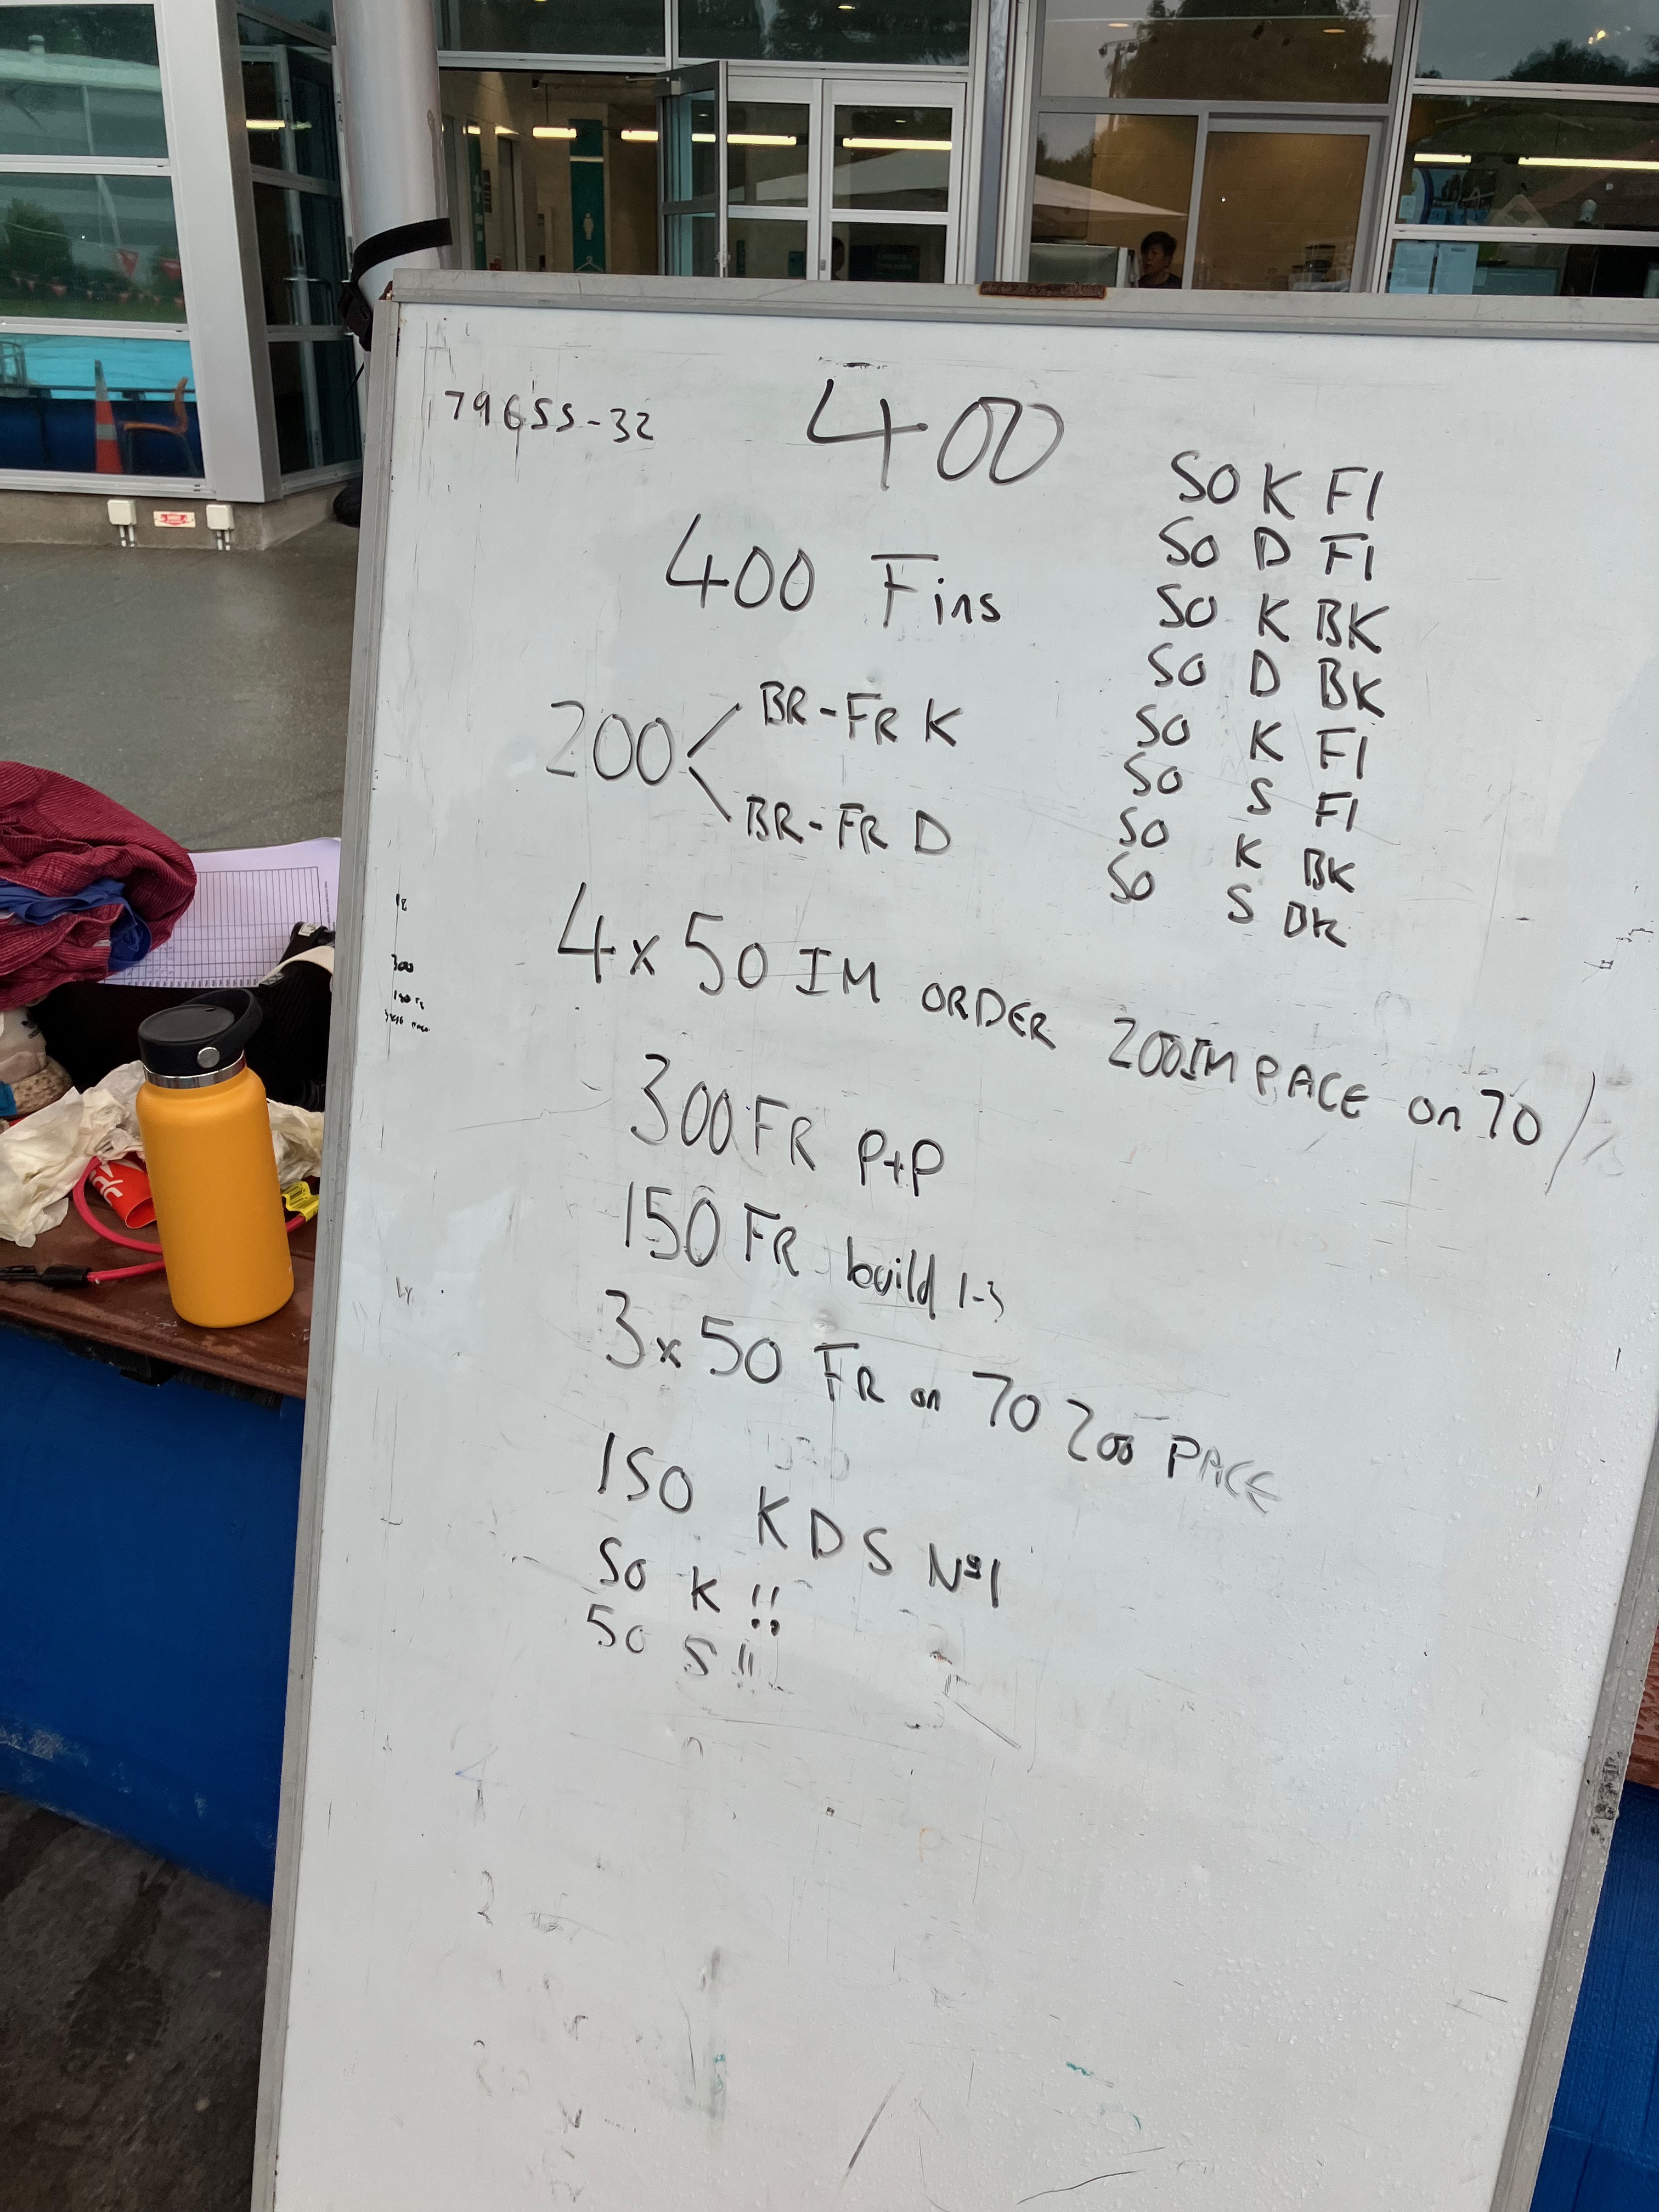 79655-32
400
400 Fins
50 K FI
50 D FI
50 K BK
50 D BK
50 K FI
50 S FI
50 K BK
50 S BK
200 BR-FR K
BR-FR D
4x50 IM ORDER 200IM PACE on 70
300 FR P+P
150 FR build 1-3
3x50 FR on 70 200 PACE
150 K D S Nº1
50 K !!
50 S !!
300